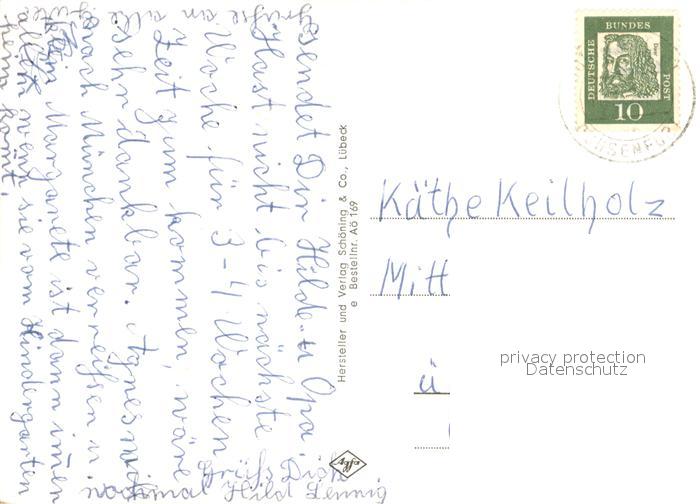 sendet Dir Hilde u Opa
Hast nicht bis nächste
Woche für 3-4 Wochen
Zeit zum kommen, wäre
sehr dankbar. Agnes
nach München verreisen u
Klein Margarete ist dann immer
allein wenn sie vom Kindergarten
heim kommt.
Grüße an alle
Grüß Dich
nochmal Hild
Hersteller und Verlag Schöning & Co., Lübeck
e Bestellnr. Aö 169
Agfa
DEUTSCHE
BUNDES
POST
Dürer
10
Käthe Keilholz
Mitt
ü
privacy protection
Datenschutz